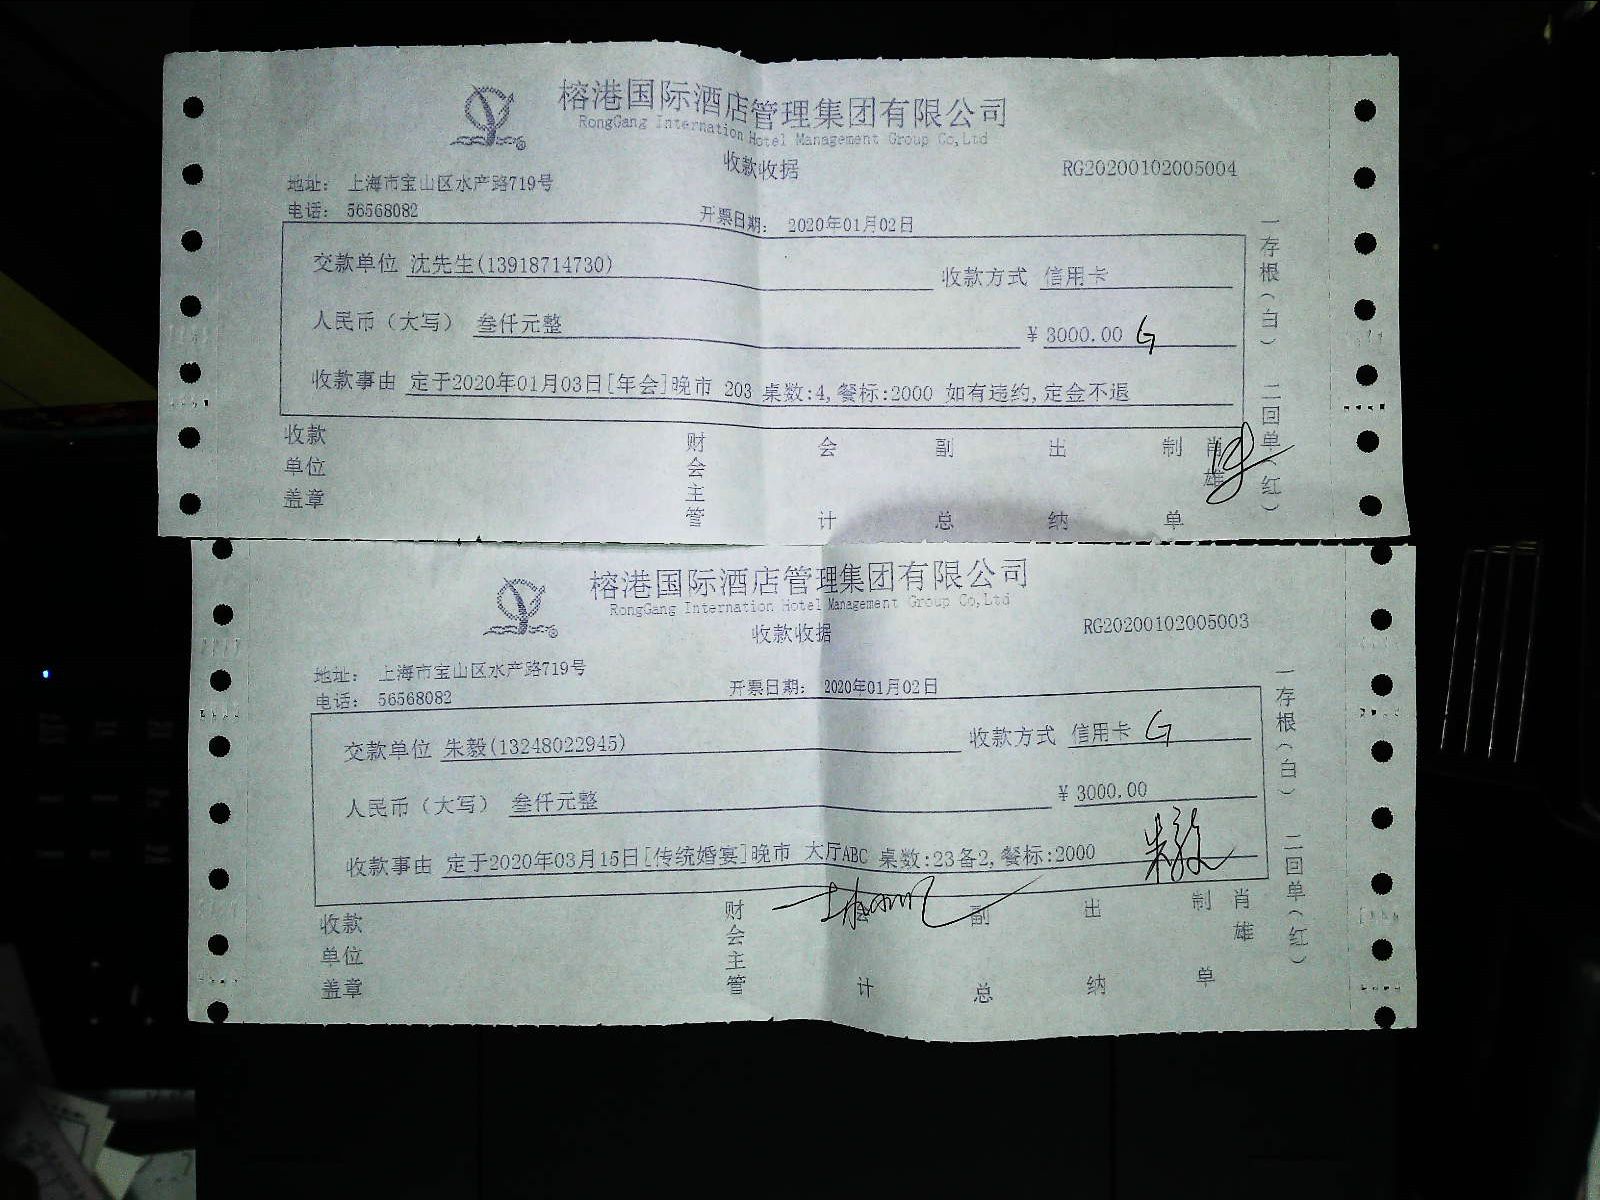 榕港国际酒店管理集团有限公司
RongGang Internation Hotel Management Group Co,Ltd
收款收据
RG20200102005004
地址： 上海市宝山区水产路719号
电话： 56568082
开票日期： 2020年01月02日
交款单位 沈先生(13918714730) 收款方式 信用卡
人民币（大写） 叁仟元整 ¥ 3000.00 G
收款事由 定于2020年01月03日[年会]晚市 203 桌数:4,餐标:2000 如有违约,定金不退
收款单位盖章 财会主管 会计 副总 出纳 制单 肖雄
一存根（白） 二回单（红）
榕港国际酒店管理集团有限公司
RongGang Internation Hotel Management Group Co,Ltd
收款收据
RG20200102005003
地址： 上海市宝山区水产路719号
电话： 56568082
开票日期： 2020年01月02日
交款单位 朱毅(13248022945) 收款方式 信用卡 G
人民币（大写） 叁仟元整 ¥ 3000.00
收款事由 定于2020年03月15日[传统婚宴]晚市 大厅ABC 桌数:23备2,餐标:2000 朱毅
收款单位盖章 财会主管 会计 副总 出纳 制单 肖雄
一存根（白） 二回单（红）